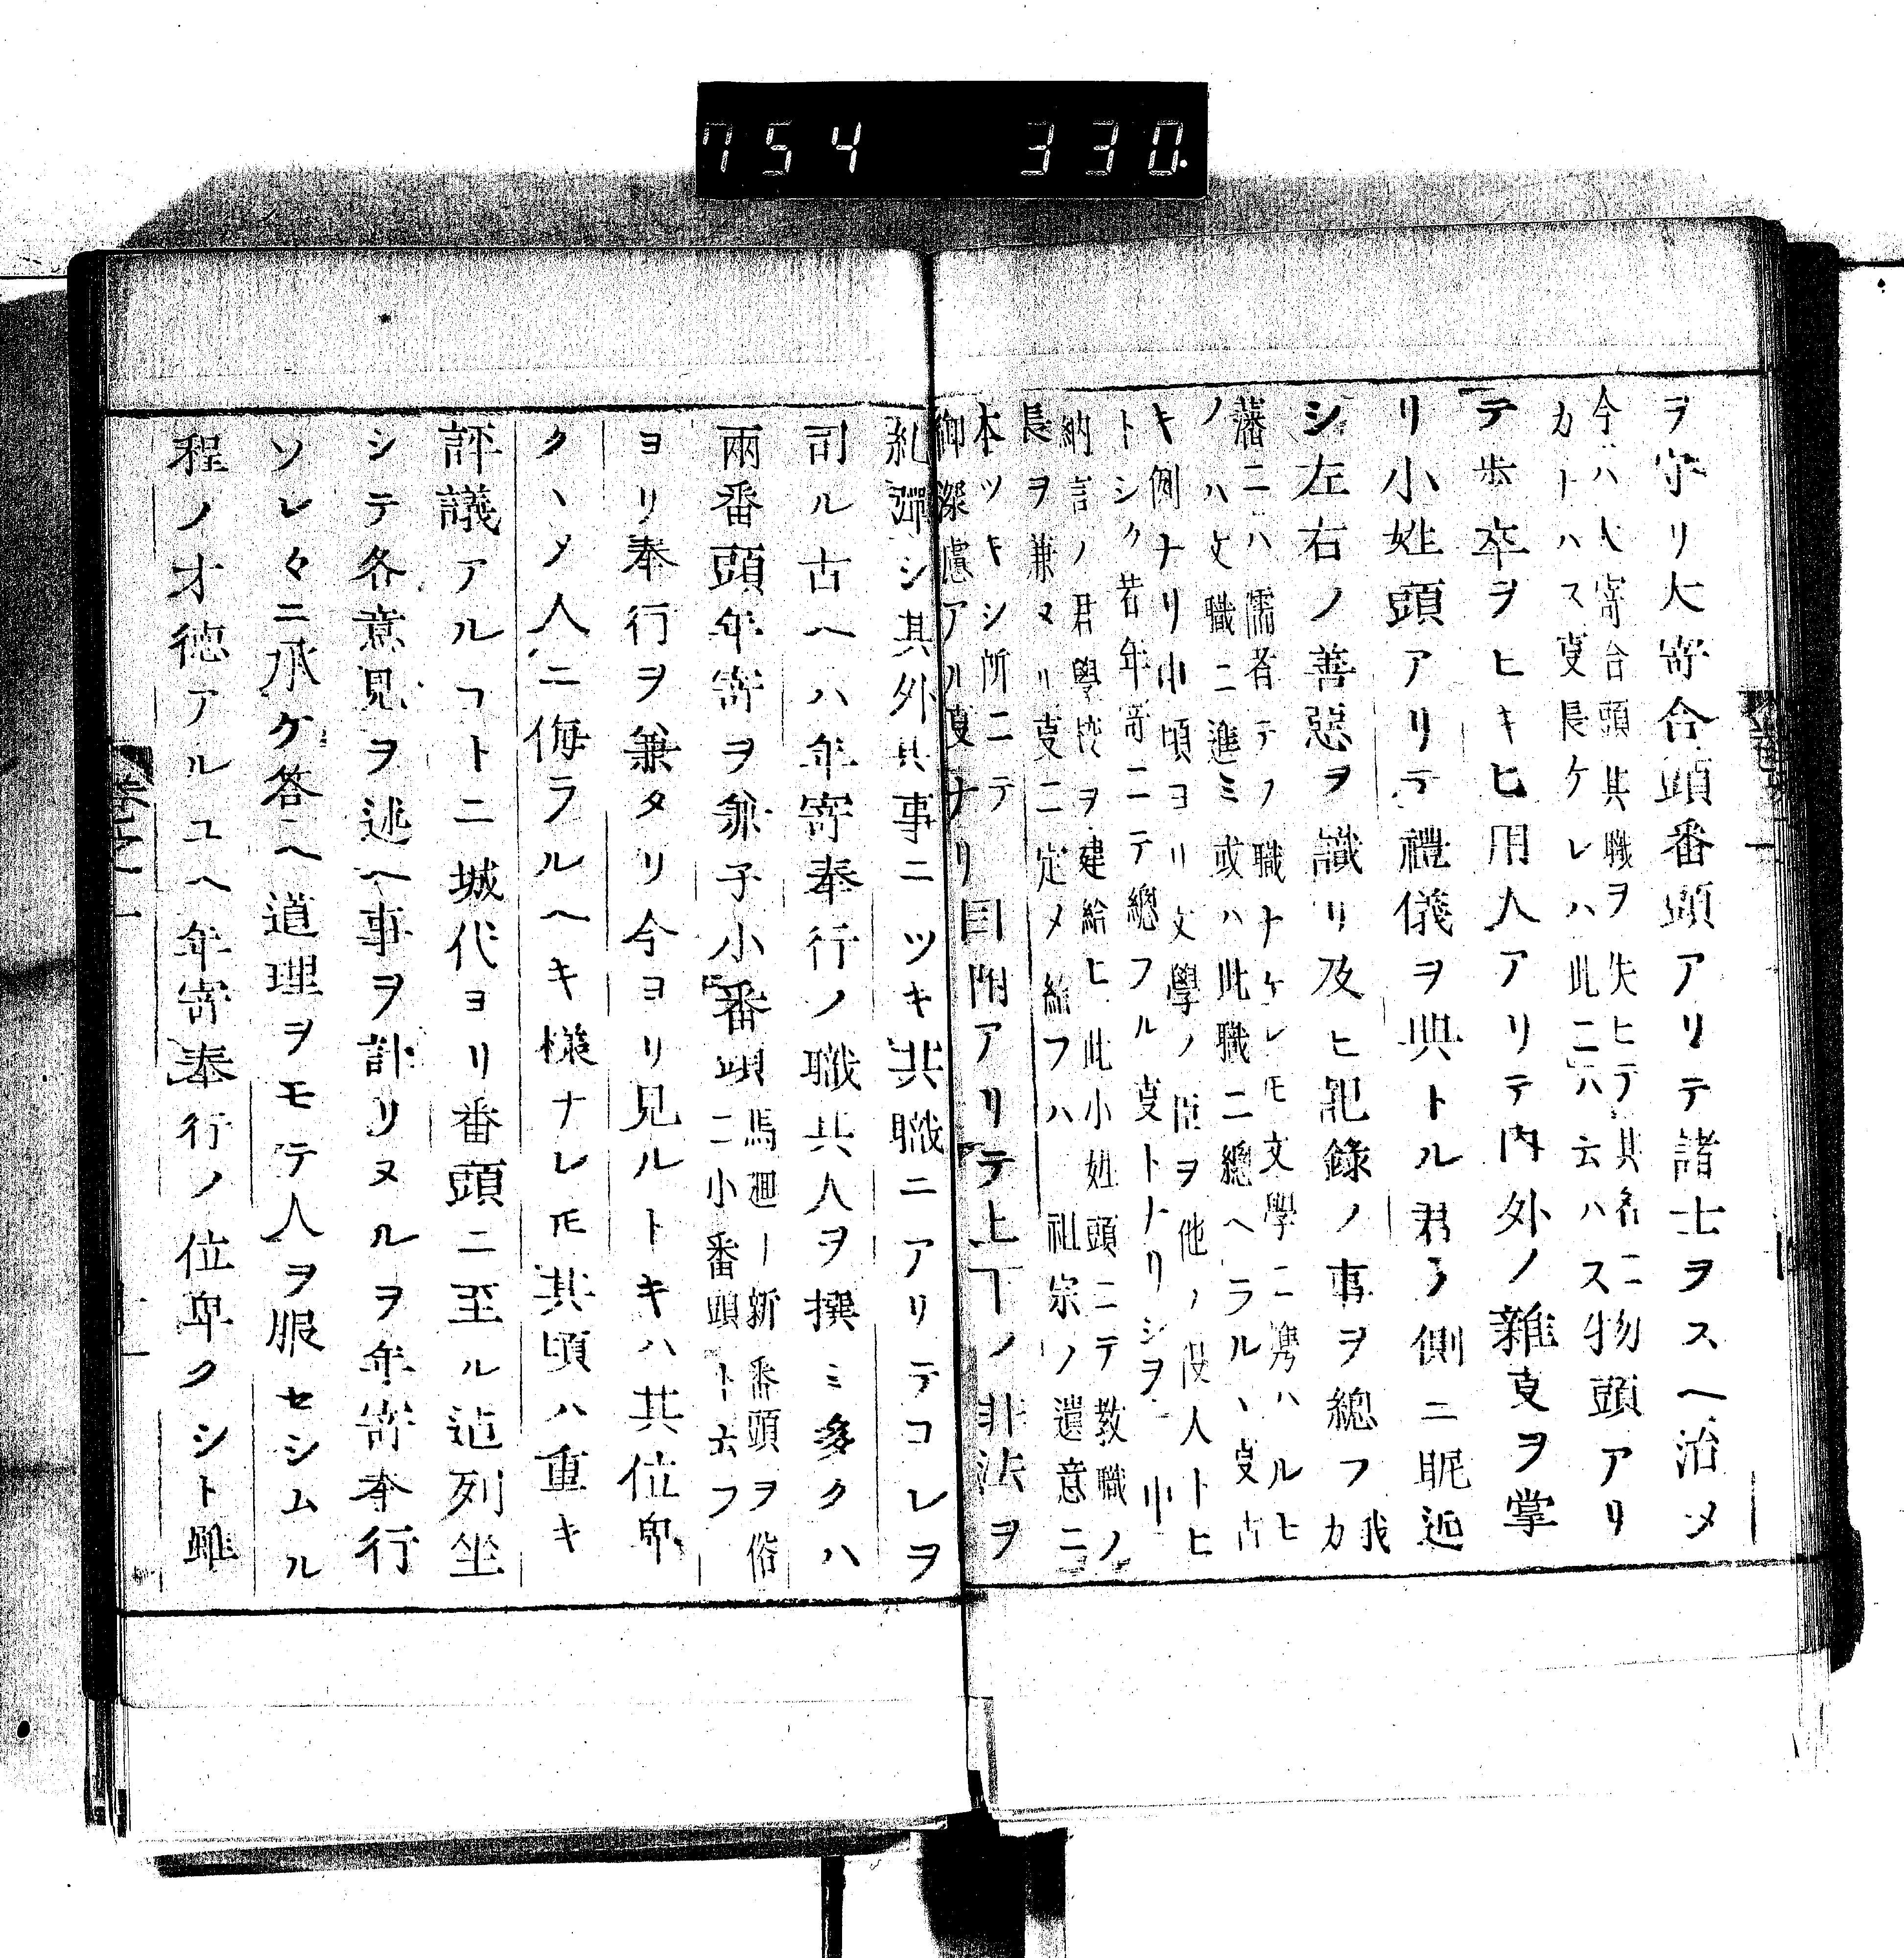 754 330
ヲ守リ大寄合頭番頭アリテ諸士ヲスヘ治メ
今ハ大寄合頭其職ヲ失ヒテ其名ニ
カトハス㕝長ケレハ此ニハ云ハス物頭アリ
テ歩卒ヲヒキヒ用人アリテ内外ノ雜㕝ヲ掌
リ小姓頭アリテ禮儀ヲ典トル君ノ側ニ昵近
シ左右ノ善惡ヲ識リ及ヒ記錄ノ事ヲ總フ我
カ
藩ニハ儒者テフ職ナケレ𪜈文學ニ携ハルヒ
ノハ文職ニ進ミ或ハ此職ニ總ヘラルヽ㕝古
キ例ナリ中頃ヨリ文學ノ臣ヲ他ノ役人トヒ
トシク若年寄ニテ總フル㕝トナリシヲ中
納言ノ君學校ヲ建給ヒ此小姓頭ニテ教職ノ
長ヲ兼マリ㕝ニ定メ給フハ 祖宗ノ遺意ニ
本ツキシ所ニテ
御深慮アル㕝ナリ目附アリテ上下ノ非法ヲ
糺彈シ其外其事ニツキ其職ニアリテコレヲ
司ル古ヘハ年寄奉行ノ職其人ヲ撰ミ多クハ
兩番頭年寄ヲ兼子小番頭馬廻ー新番頭ヲ俗
ニ小番頭ト云フ
ヨリ奉行ヲ兼タリ今ヨリ見ルトキハ其位卑
クヽメ人ニ侮ラルヘキ樣ナレ𪜈其頃ハ重キ
評議アルコトニ城代ヨリ番頭ニ至ル迠列坐
シテ各意見ヲ述ヘ事ヲ計リヌルヲ年寄奉行
ソレ々ニ承ケ答ヘ道理ヲモテ人ヲ服セシムル
程ノオ徳アルユヘ年寄奉行ノ位卑クシト雖